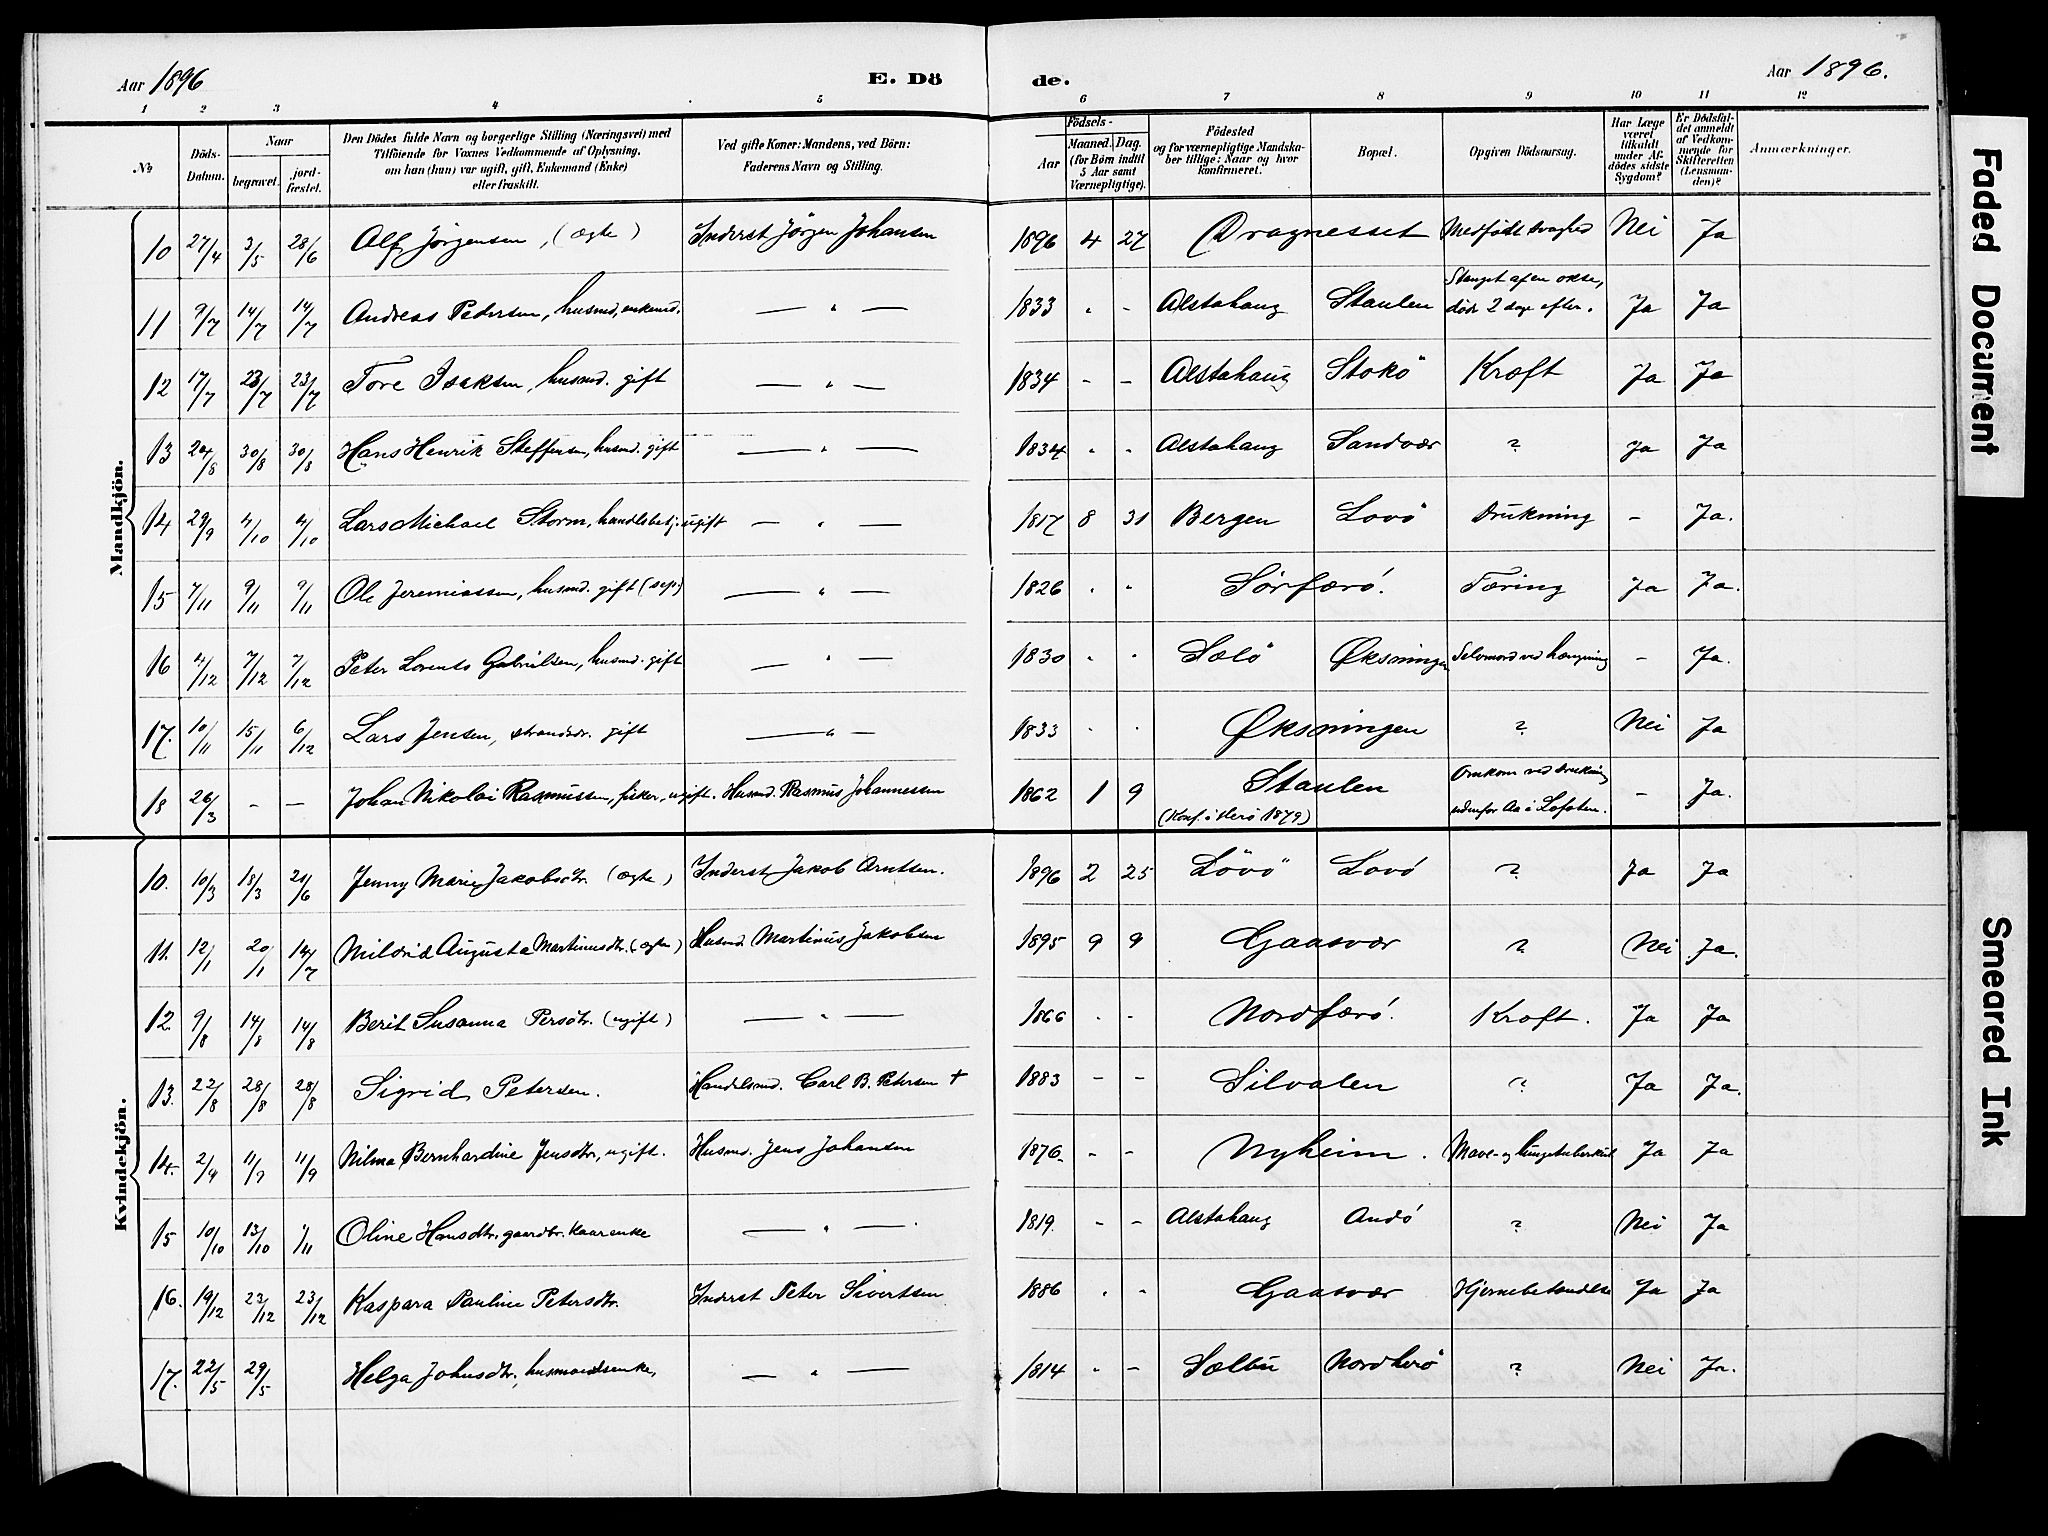 Aar 1896 E. Dö de. Aar 1896.
1 2 3 4 5 6 7 8 9 10 11 12
№ Döds-Datum. Naar begravet. jordfæstet. Den Dödes fulde Navn og borgerlige Stilling (Næringsvei) med Tilföiende for Voxnes Vedkommende af Oplysning, om han (hun) var ugift, gift, Enkemand (Enke) eller fraskilt. Ved gifte Koner: Mandens, ved Börn: Faderens Navn og Stilling. Födsels- Aar Maaned. Dag. (for Börn indtil 5 Aar samt Værnepligtige). Födested og for værnepligtige Mandskaber tillige: Naar og hvor konfirmeret. Bopæl. Opgiven Dödsaarsag. Har Læge været tilkaldt under Afdödes sidste Sygdom? Er Dödsfaldet anmeldt af Vedkommende for Skifteretten (Lensmanden)? Anmærkninger.
Mandkjön.
10 27/4 3/5 28/6 Alf Jørgensen, (ægte) Inderst Jørgen Johansen 1896 4 27 Dragnesset Medfødt svaghed Nei Ja
11 9/7 14/7 14/7 Andreas Pedersen, husmd, enkemd. — " — 1833 " - Alstahaug Staulen Stanget af en okse, døde 2 dage efter. Ja Ja
12 17/7 23/7 23/7 Tore Isaksen, husmd. gift — " — 1834 - - Alstahaug Stokö Kræft Ja Ja
13 20/8 30/8 30/8 Hans Henrik Steffensen, husmd. gift — " — 1834 " " Alstahaug Sandvær ? Ja Ja
14 29/9 4/10 4/10 Lars Michael Storm, handlsbetj. ugift — " — 1817 8 31 Bergen Lovö Drukning - Ja.
15 7/11 9/11 9/11 Ole Jeremiassen, husmd. gift (sep.) — " — 1826 " " Sørfærö. Tæring Ja Ja.
16 4/12 7/12 7/12 Peter Lorents Gabrielsen, husmd. gift — " — 1830 " " Sælö Øksningen Selvmord ved hængning - Ja.
17. 10/11 15/11 6/12 Lars Jensen, strandsr. gift — " — 1833 " " Øksningen ? Nei Ja
18 26/3 - - Johan Nikolai Rasmussen, fisker, ugift. Husmd. Rasmus Johannessen 1862 1 9 Staulen (Konf. i Herö 1879) Omkom ved drukning udenfor Aa i Lofoten. - Ja.
Kvindekjön.
10. 10/3 18/3 21/6 Jenny Marie Jakobsdtr. (ægte) Inderst Jakob Arntsen. 1896 2 25 Lövö Lovö ? Ja Ja
11. 12/1 20/1 14/7 Mildrid Augusta Martinusdtr. (ægte) Husmd. Martinus Jakobsen 1895 9 9 Gaasvær ? Nei Ja.
12. 9/8 14/8 14/8 Berit Susanna Persdtr. (ugift) — " — 1866 " - Nordfærö. Kræft. Ja Ja
13. 22/8 28/8 28/8 Sigrid Petersen. Handelsmd. Carl B. Petersen + 1883 - - Silvalen ? Ja Ja.
14. 2/9 11/9 11/9 Nilma Bernhardine Jensdtr, ugift. Husmd. Jens Johansen 1876. - - Nyheim. Mave- og lungetuberkul. Ja Ja
15 10/10 13/10 1/11 Oline Hansdtr. gaardbr. kaarenke — " — 1819. - - Alstahaug Andö ? Nei Ja
16. 19/12 23/12 23/12 Kaspara Pauline Petersdtr. Inderst Peter Sivertsen 1886 " " Gaasvær Hjernebetændelse Ja Ja
17. 22/5 29/5 Helga Johnsdtr., husmandsenke, — " — 1814 " - Sælbu Nordherö ? Nei Ja.
Faded Document
Smeared Ink